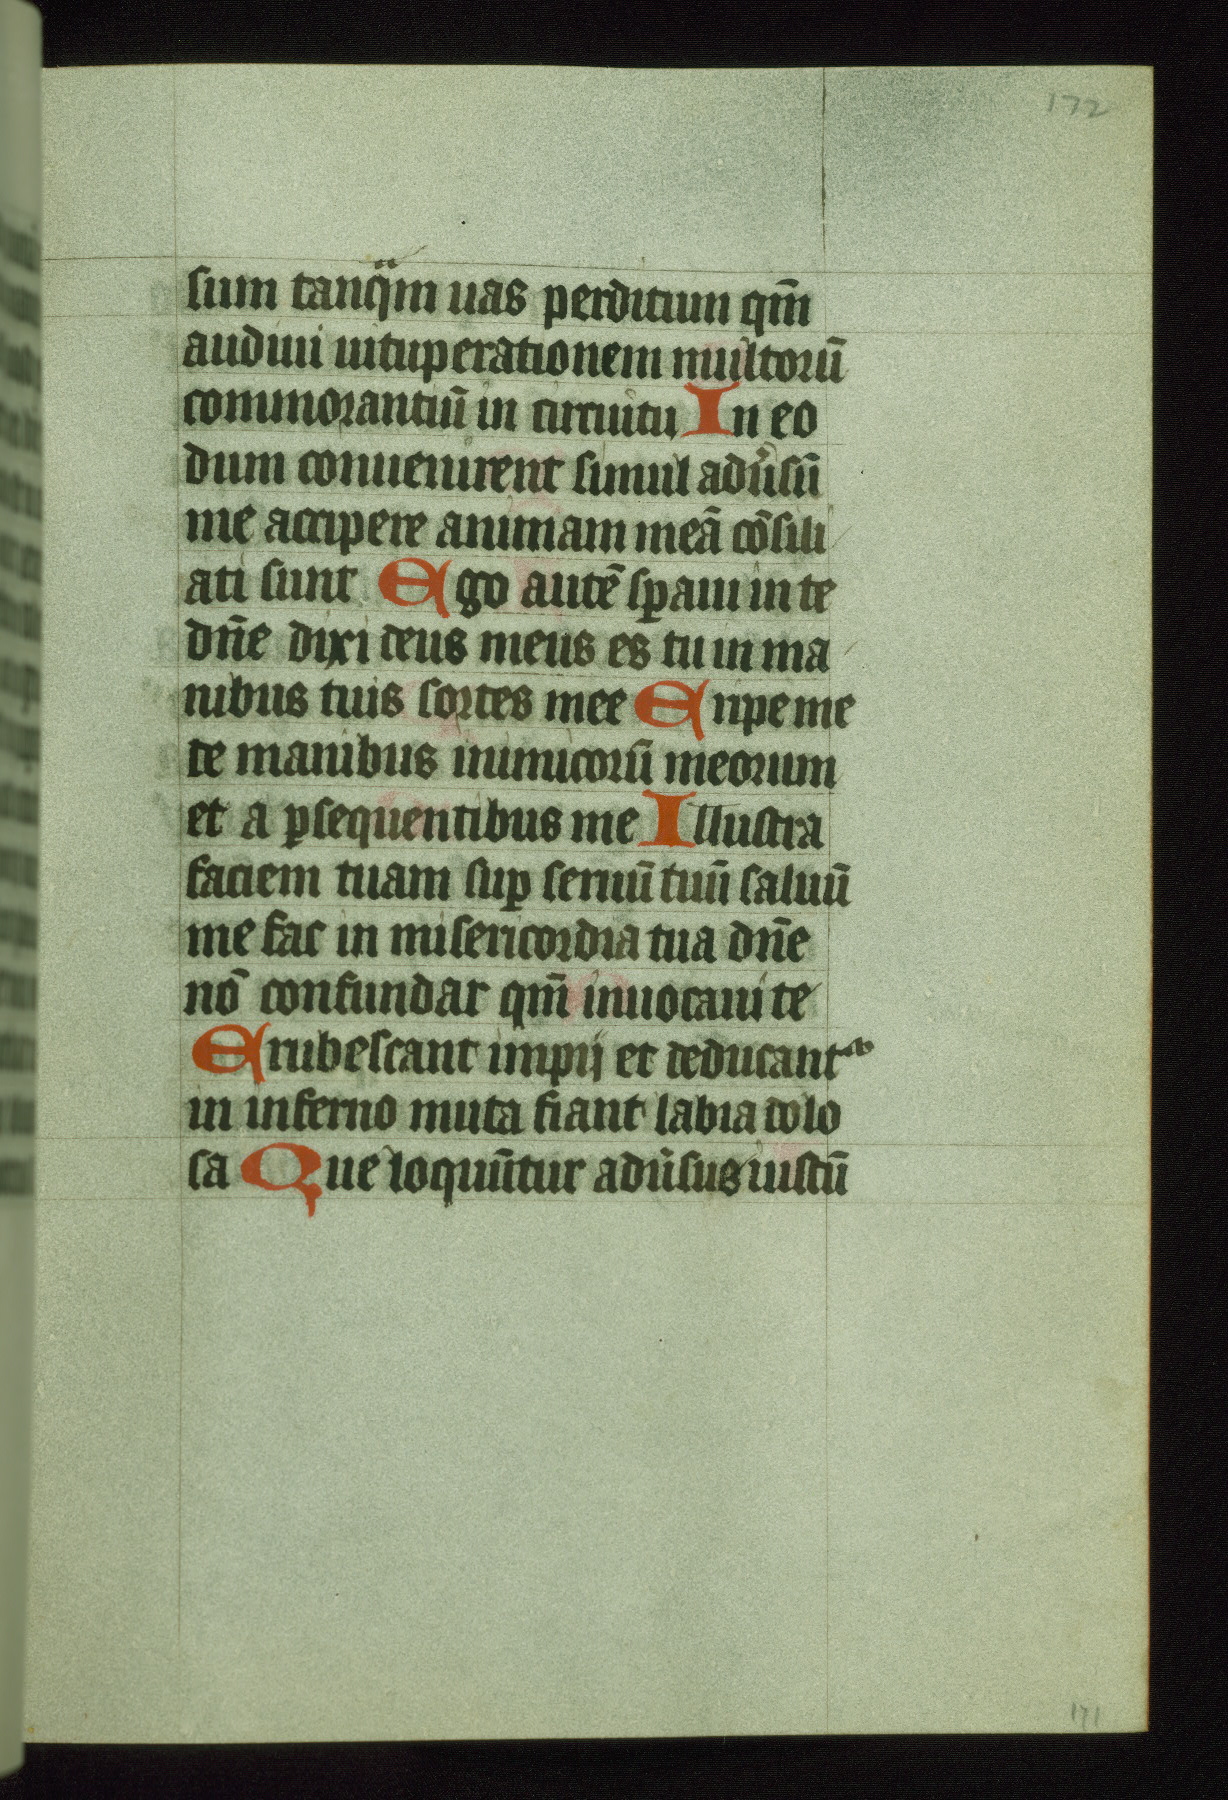 172
sum tanq̄m uas perditum qm̄
audiui uituperationem multorū
commorantiū in circuitu In eo
dum conuenirent simul adūsū
me accipere animam meā cōsili
ati sunt Ego autē sꝑaui in te
dn̄e dixi deus meus es tu in ma
nibus tuis sortes mee Eripe me
de manibus inimicorū meorum
et a ꝑsequentibus me Illustra
faciem tuam suꝑ seruū tuū saluū
me fac in misericordia tua dn̄e
nō confundar qm̄ inuocaui te
Erubescant impij et deducant᷑
in inferno muta fiant labia dolo
sa Que loquūtur adūsus iustū
171